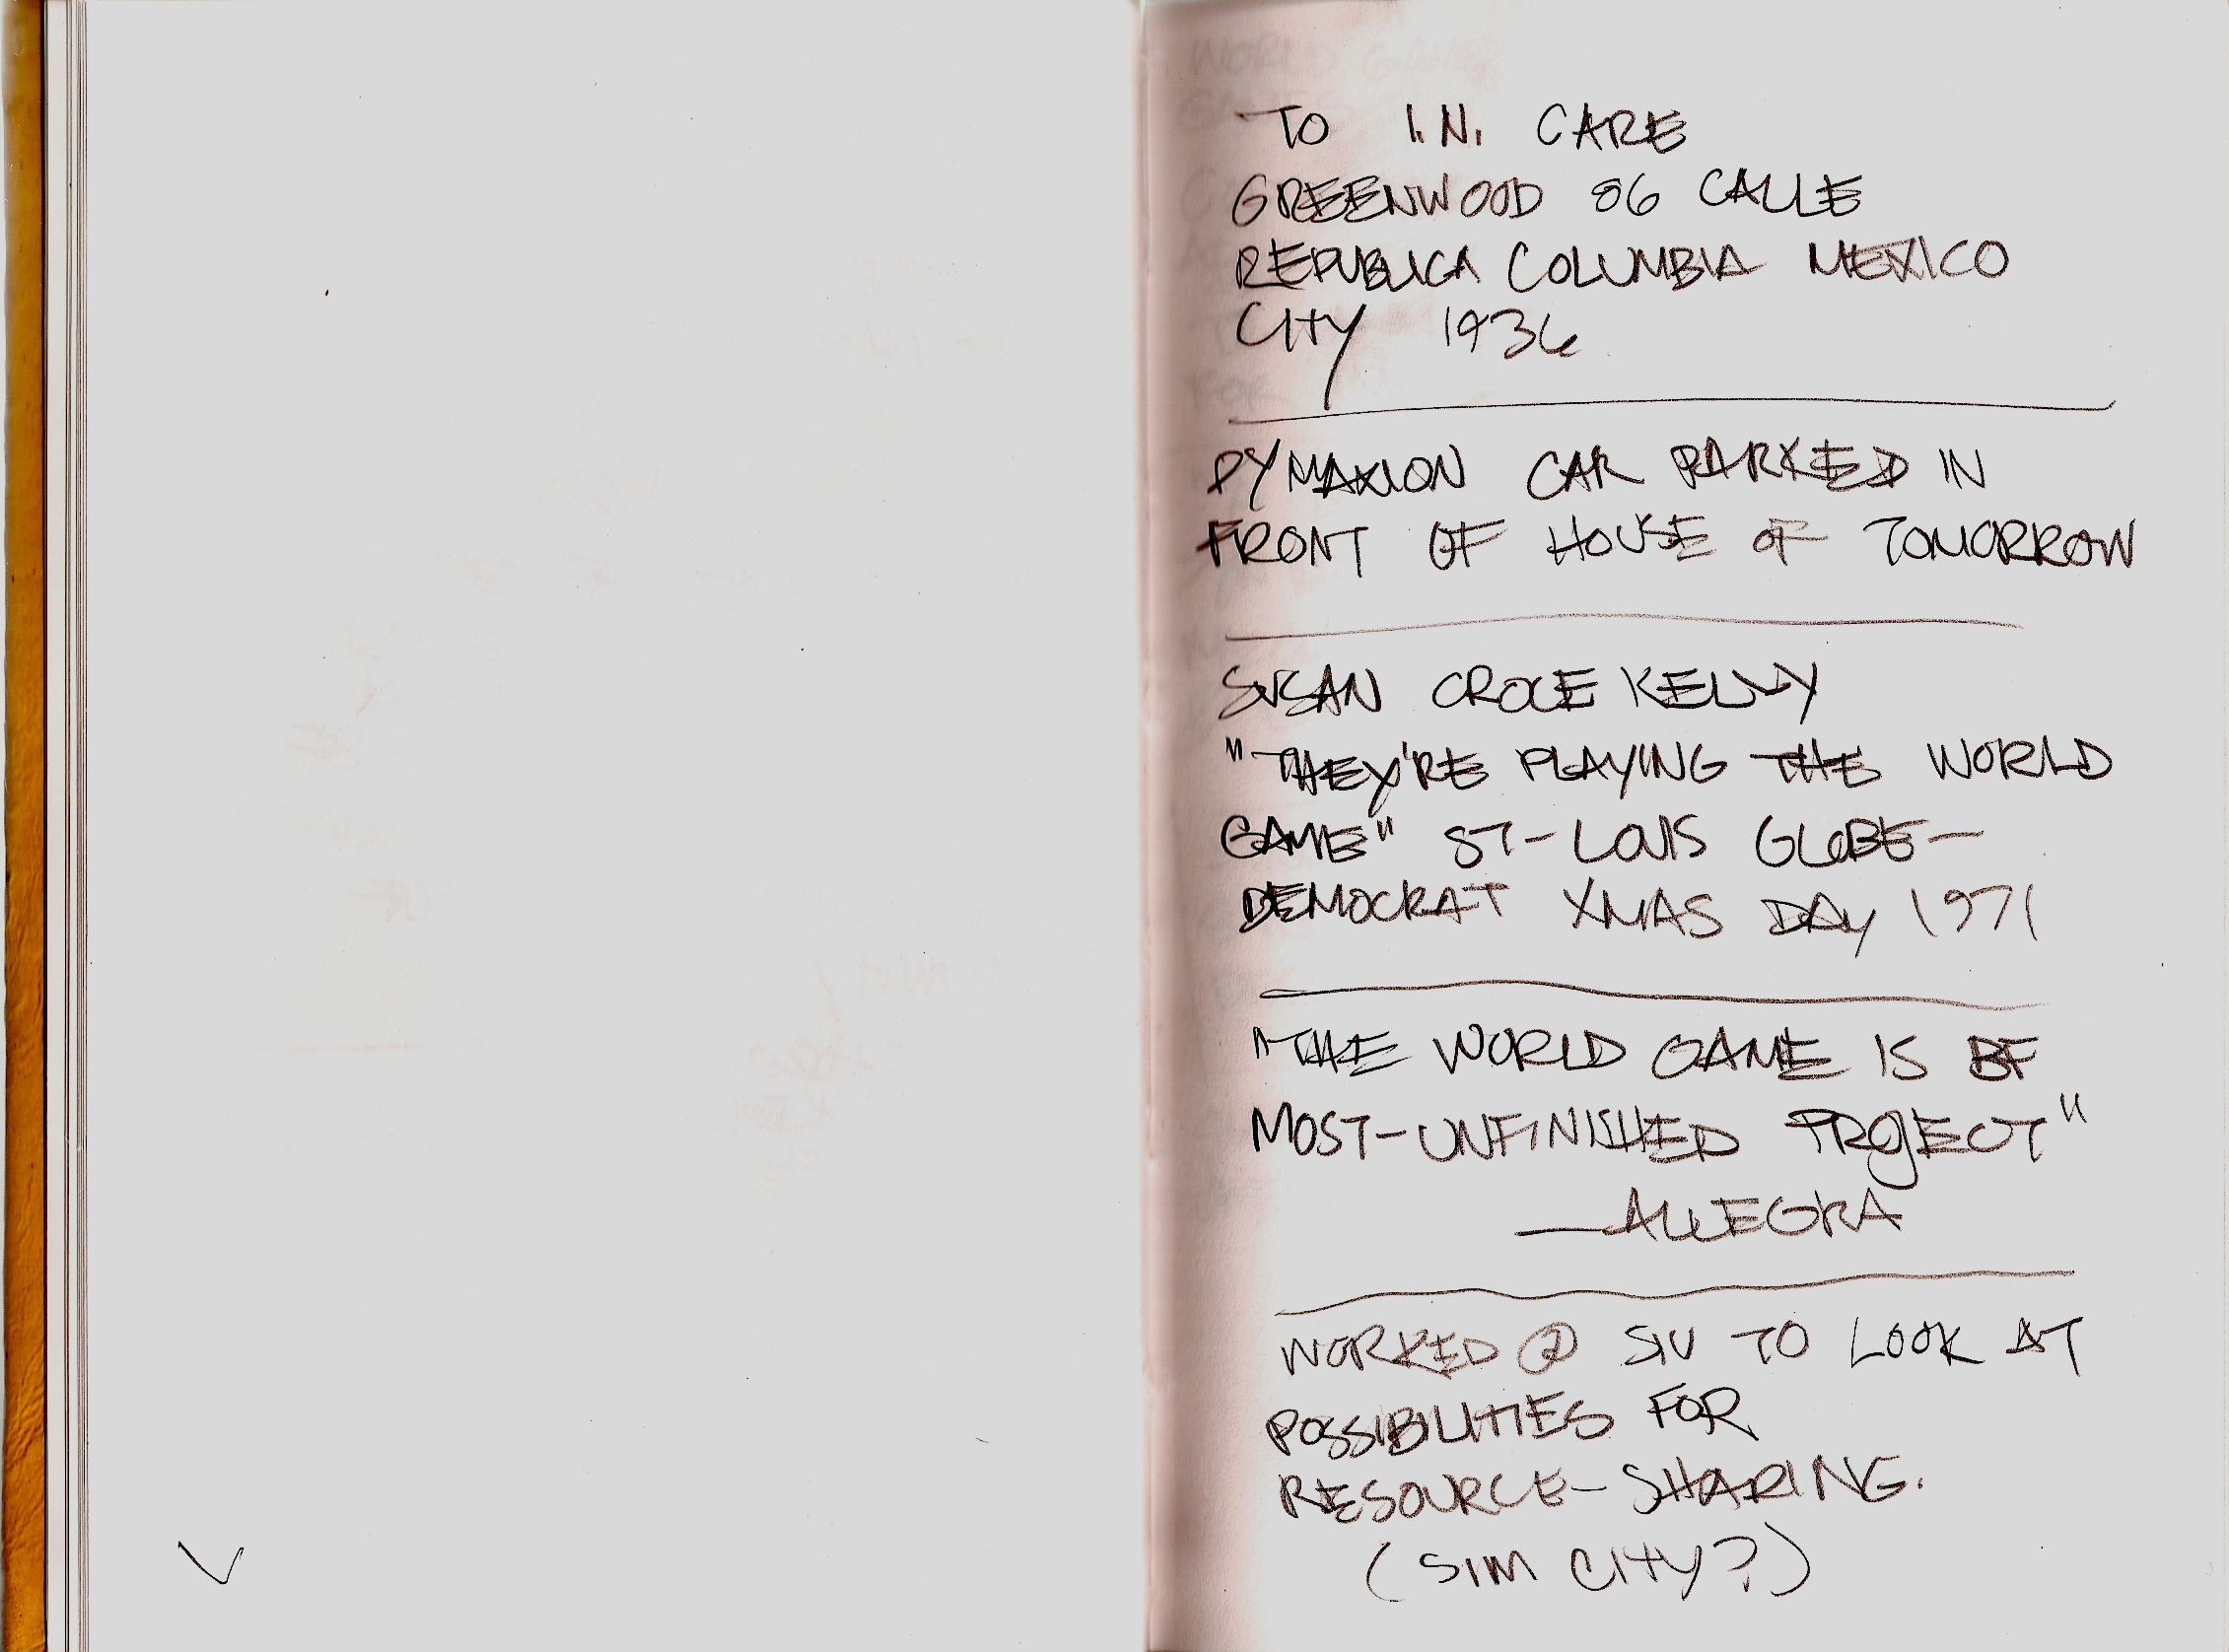 TO I.N. CARE
GREENWOOD 86 CALLE
REPUBLICA COLUMBIA MEXICO
CITY 1936
DYMAXION CAR PARKED IN
FRONT OF HOUSE OF TOMORROW
SUSAN CROCE KELLY
"THEY'RE PLAYING THE WORLD
GAME" ST-LOUIS GLOBE-
DEMOCRAT XMAS DAY 1971
"THE WORLD GAME IS BF
MOST-UNFINISHED PROJECT"
—ALLEGRA
WORKED @ SIU TO LOOK AT
POSSIBILITIES FOR
RESOURCE-SHARING.
(SIM CITY?)